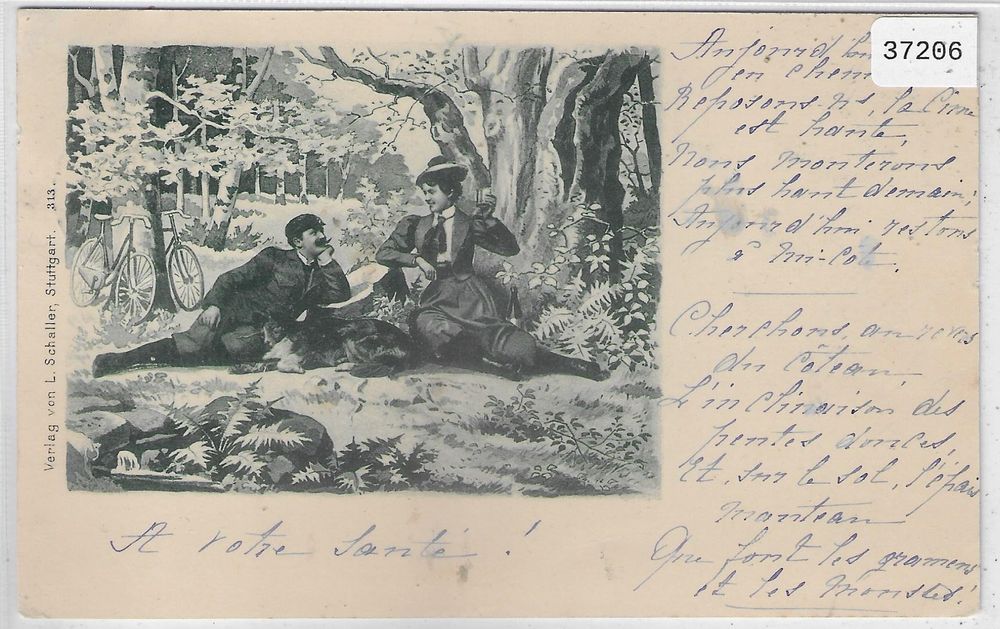 37206
Aujourd'hui
en chem
Reposons-ns, la Cime
est haute,
Nous monterons
plus haut demain;
Aujourd'hui restons
à Mi-Côte.
Cherchons, au revers
du Côteau,
L'inclinaison des
pentes douces,
Et, sur le sol, l'épais
manteau
Que font les gramens
et les Mousses!
A votre santé !
Verlag von L. Schaller, Stuttgart. 313.